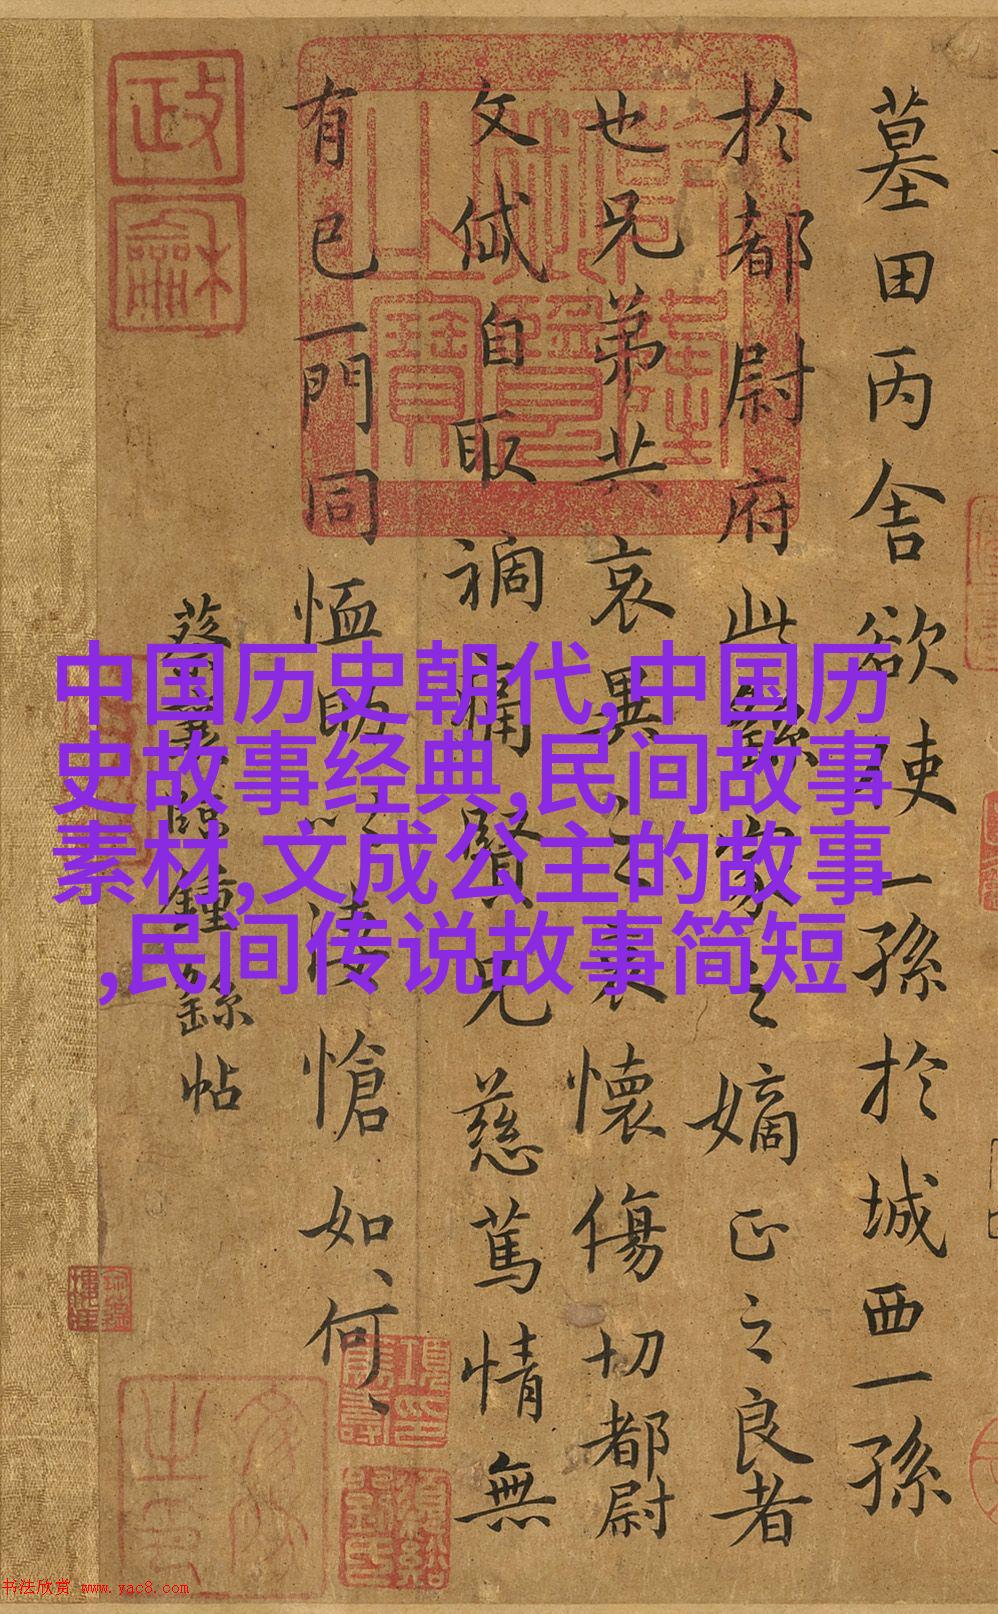 墓田丙舍欲使一孫於城西一孫
於都尉府此繇家之嫡正之良者
也兄弟共哀異之哀懷傷切都尉
文岱自取禍痛賢兄慈篤情無
有已一門同恤助以悽愴如、何、
臨鍾繇帖
政
龢
中国历史朝代,中国历
史故事经典,民间故事
素材,文成公主的故事
,民间传说故事简短
书法欣赏 www.yac8.com